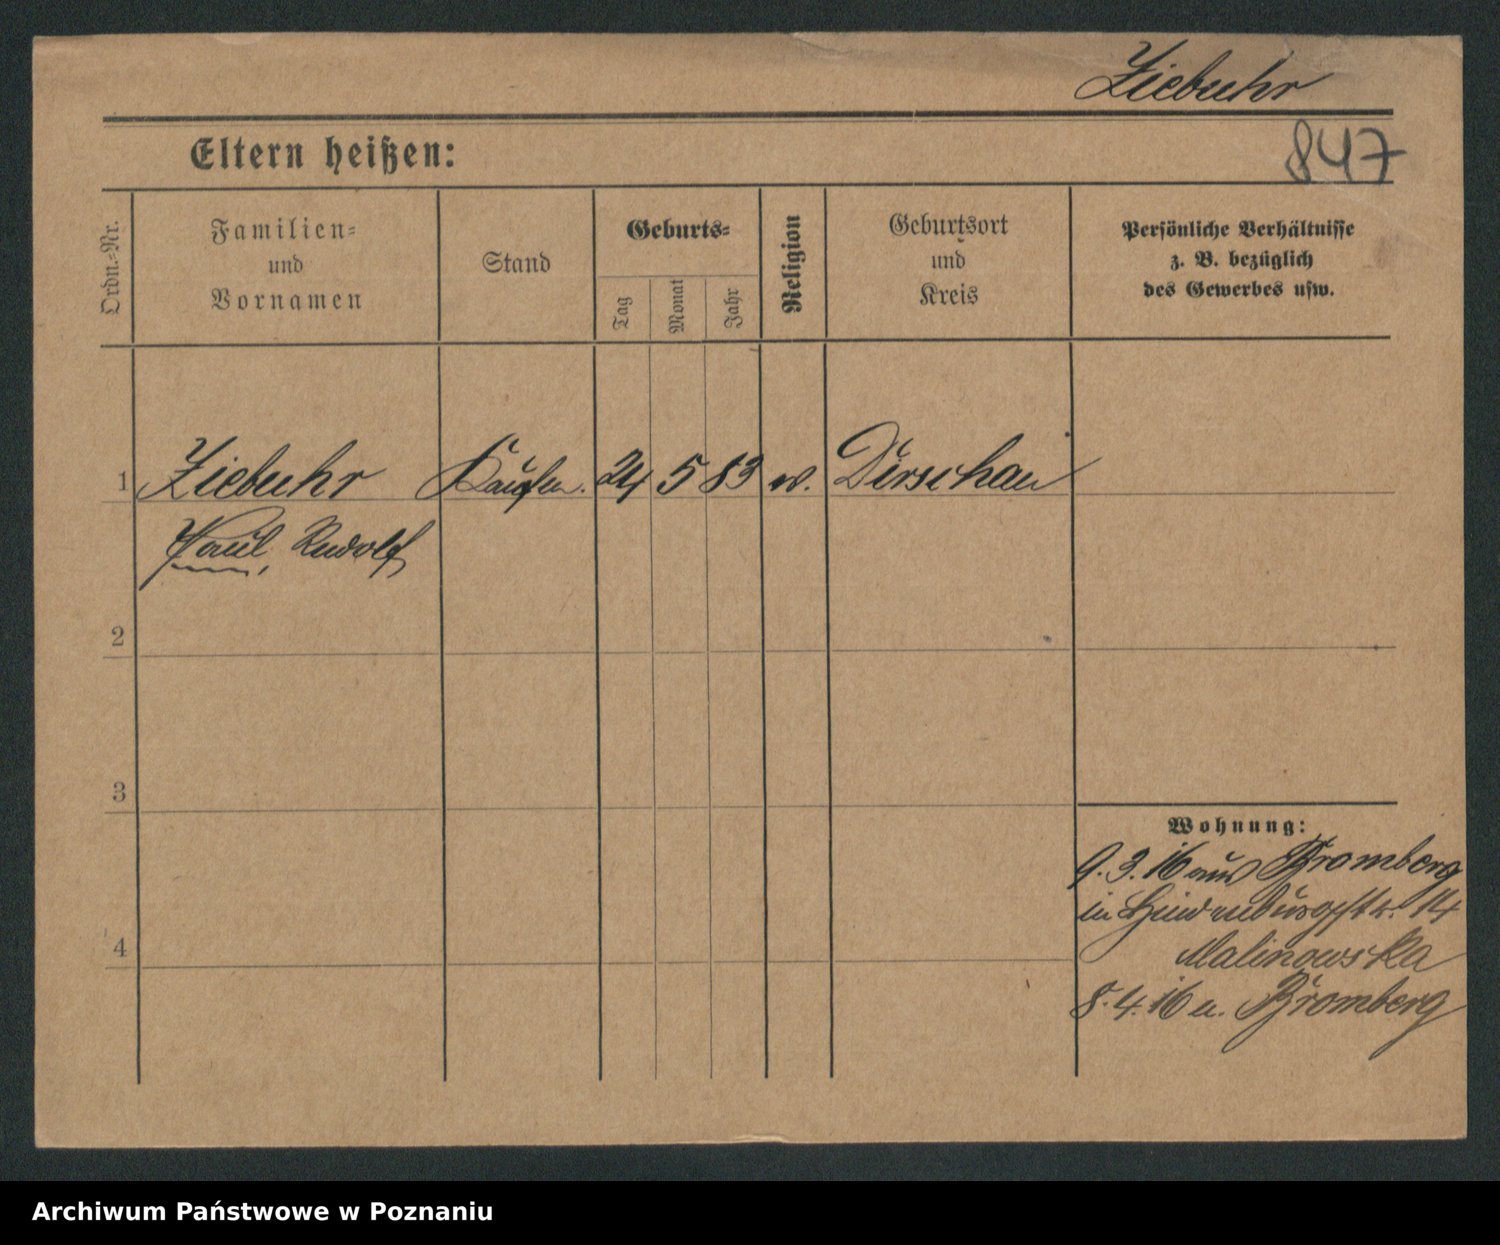 Ziebuhr
847
Eltern heißen:
Ordn.=Nr.
Familien=
und
Vornamen
Stand
Geburts=
Tag
Monat
Jahr
Religion
Geburtsort
und
Kreis
Persönliche Verhältnisse
z. B. bezüglich
des Gewerbes usw.
1 Ziebuhr Kaufm. 24 5 83 ev. Dirschau
Paul, Rudolf
2
3
4
Wohnung:
9.3.16 aus Bromberg
in Hindenburgstr. 14
Malinowska
8.4.16 n. Bromberg
Archiwum Państwowe w Poznaniu